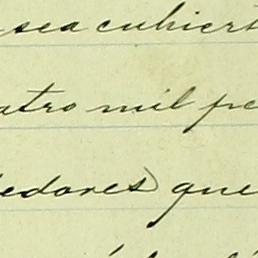 sea cubiert
atro mil pe
edores) que